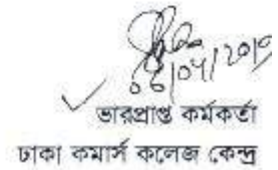 ০৮/০৭/২০১৭
ভারপ্রাপ্ত কর্মকর্তা
ঢাকা কমার্স কলেজ কেন্দ্র